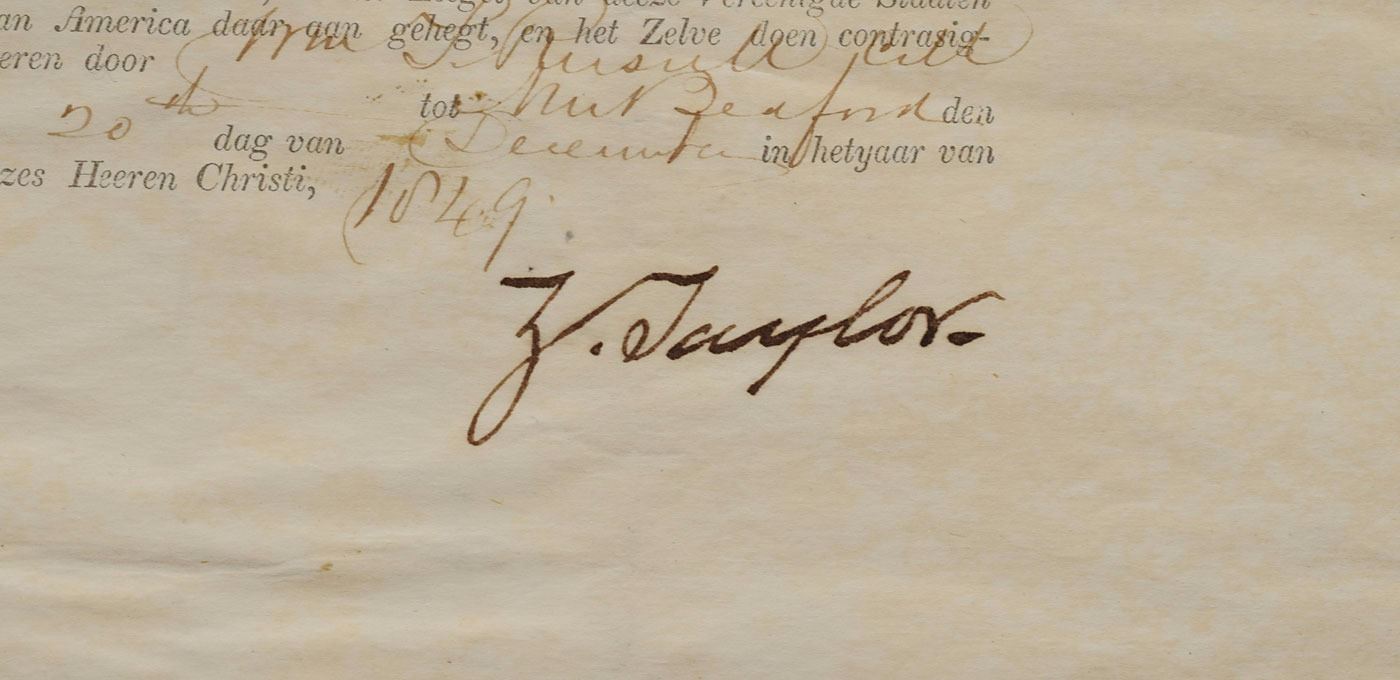 Zeegel, van deeze Vereenigde Staaten
an America daar aan gehegt, en het Zelve doen contrasig-
eren door Wm T. Russell Coll
20th tot New Bedford den
dag van December in hetyaar van
zes Heeren Christi, 1849.
Z. Taylor.